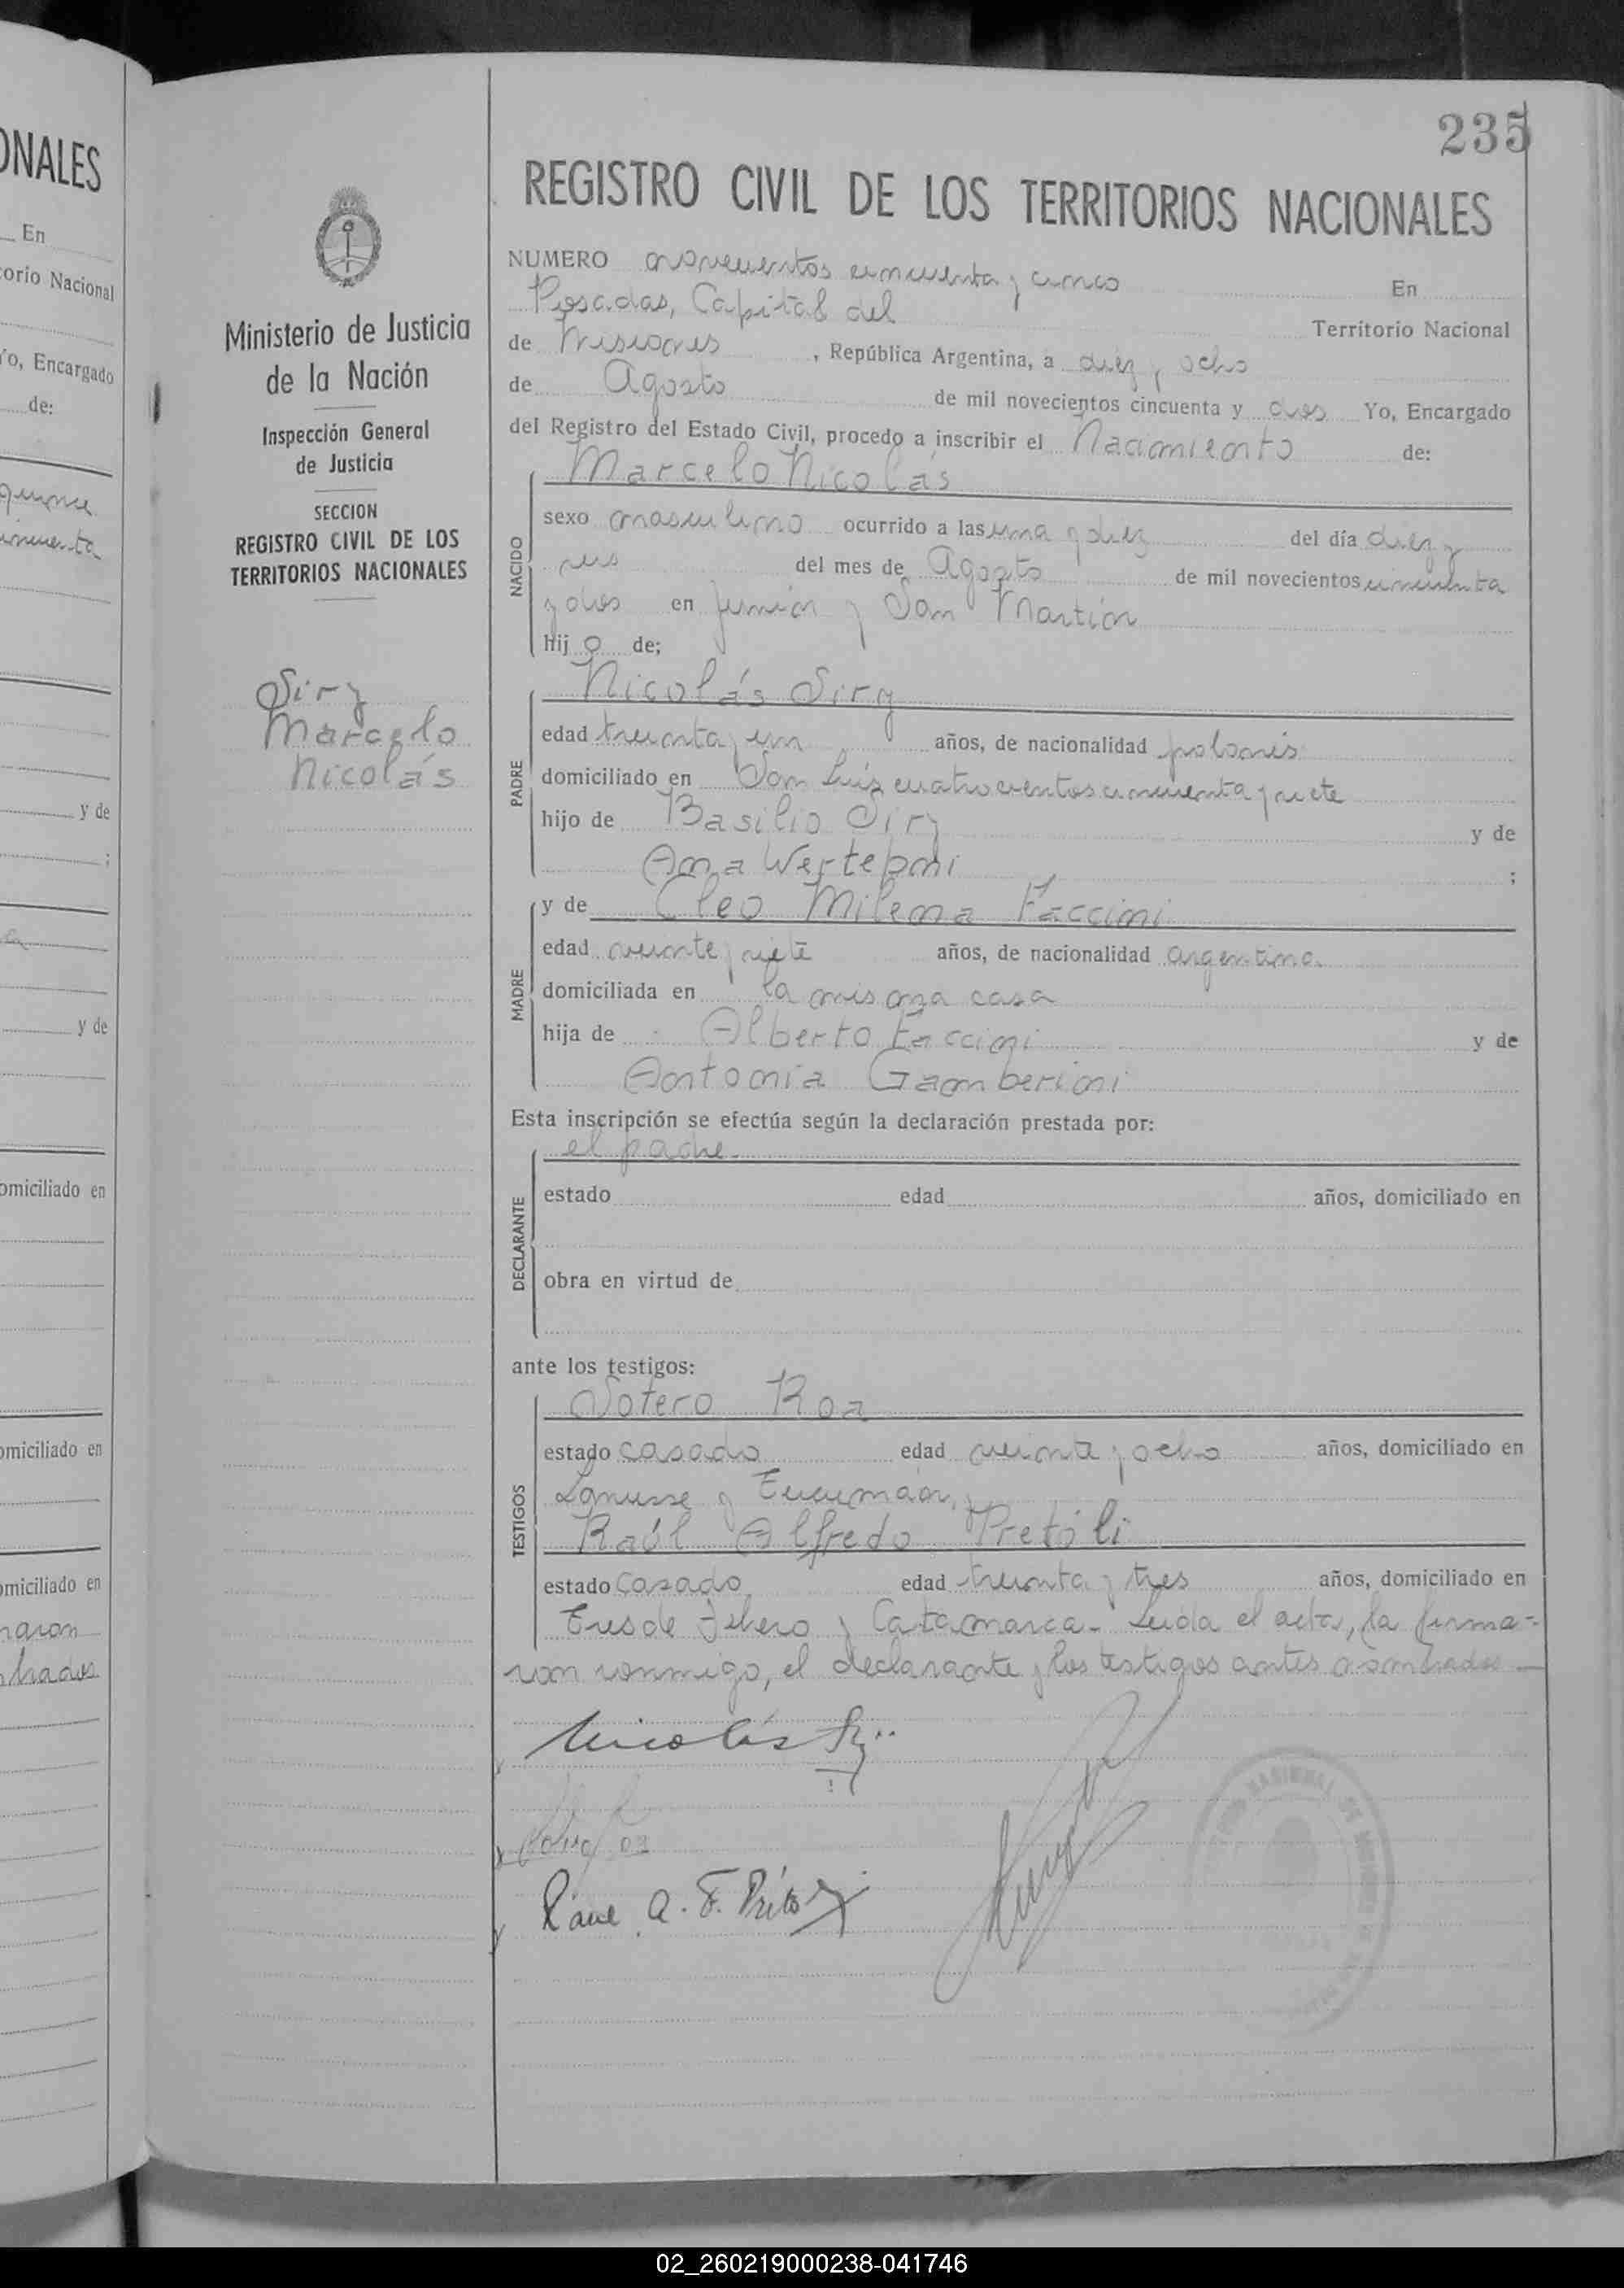 ONALES
En
torio Nacional
Yo, Encargado
de:
quince
cincuenta
y de
;
y de
omiciliado en
omiciliado en
omiciliado en
maron
brados
235
REGISTRO CIVIL DE LOS TERRITORIOS NACIONALES
Ministerio de Justicia
de la Nación
Inspección General
de Justicia
SECCION
REGISTRO CIVIL DE LOS
TERRITORIOS NACIONALES
Siry
Marcelo
Nicolás
NUMERO novecientos cincuenta y cinco En
Posadas, Capital del Territorio Nacional
de Misiones, República Argentina, a diez y ocho
de Agosto de mil novecientos cincuenta y dos Yo, Encargado
del Registro del Estado Civil, procedo a inscribir el Nacimiento de:
Marcelo Nicolás
NACIDO
sexo masculino ocurrido a las una y diez del día diez y
seis del mes de Agosto de mil novecientos cincuenta
y dos en Junín y San Martín
hij o de;
Nicolás Siry
PADRE
edad treinta y un años, de nacionalidad polonés
domiciliado en San Luis cuatrocientos cincuenta y siete
hijo de Basilio Siry y de
Ana Wertepni ;
MADRE
y de Cleo Milena Faccini
edad veinte y siete años, de nacionalidad argentina
domiciliada en la misma casa
hija de Alberto Faccini y de
Antonia Gamberini
Esta inscripción se efectúa según la declaración prestada por:
el padre.
DECLARANTE
estado edad años, domiciliado en
obra en virtud de
ante los testigos:
TESTIGOS
Sotero Roa
estado casado edad veinte y ocho años, domiciliado en
Lanusse y Tucumán, y
Raúl Alfredo Pretóli
estado casado edad treinta y tres años, domiciliado en
Tres de Febrero y Catamarca.- Leída el acta, la firma=
ron conmigo, el declarante y los testigos antes nombrados —
Nicolás Siry
02_260219000238-041746